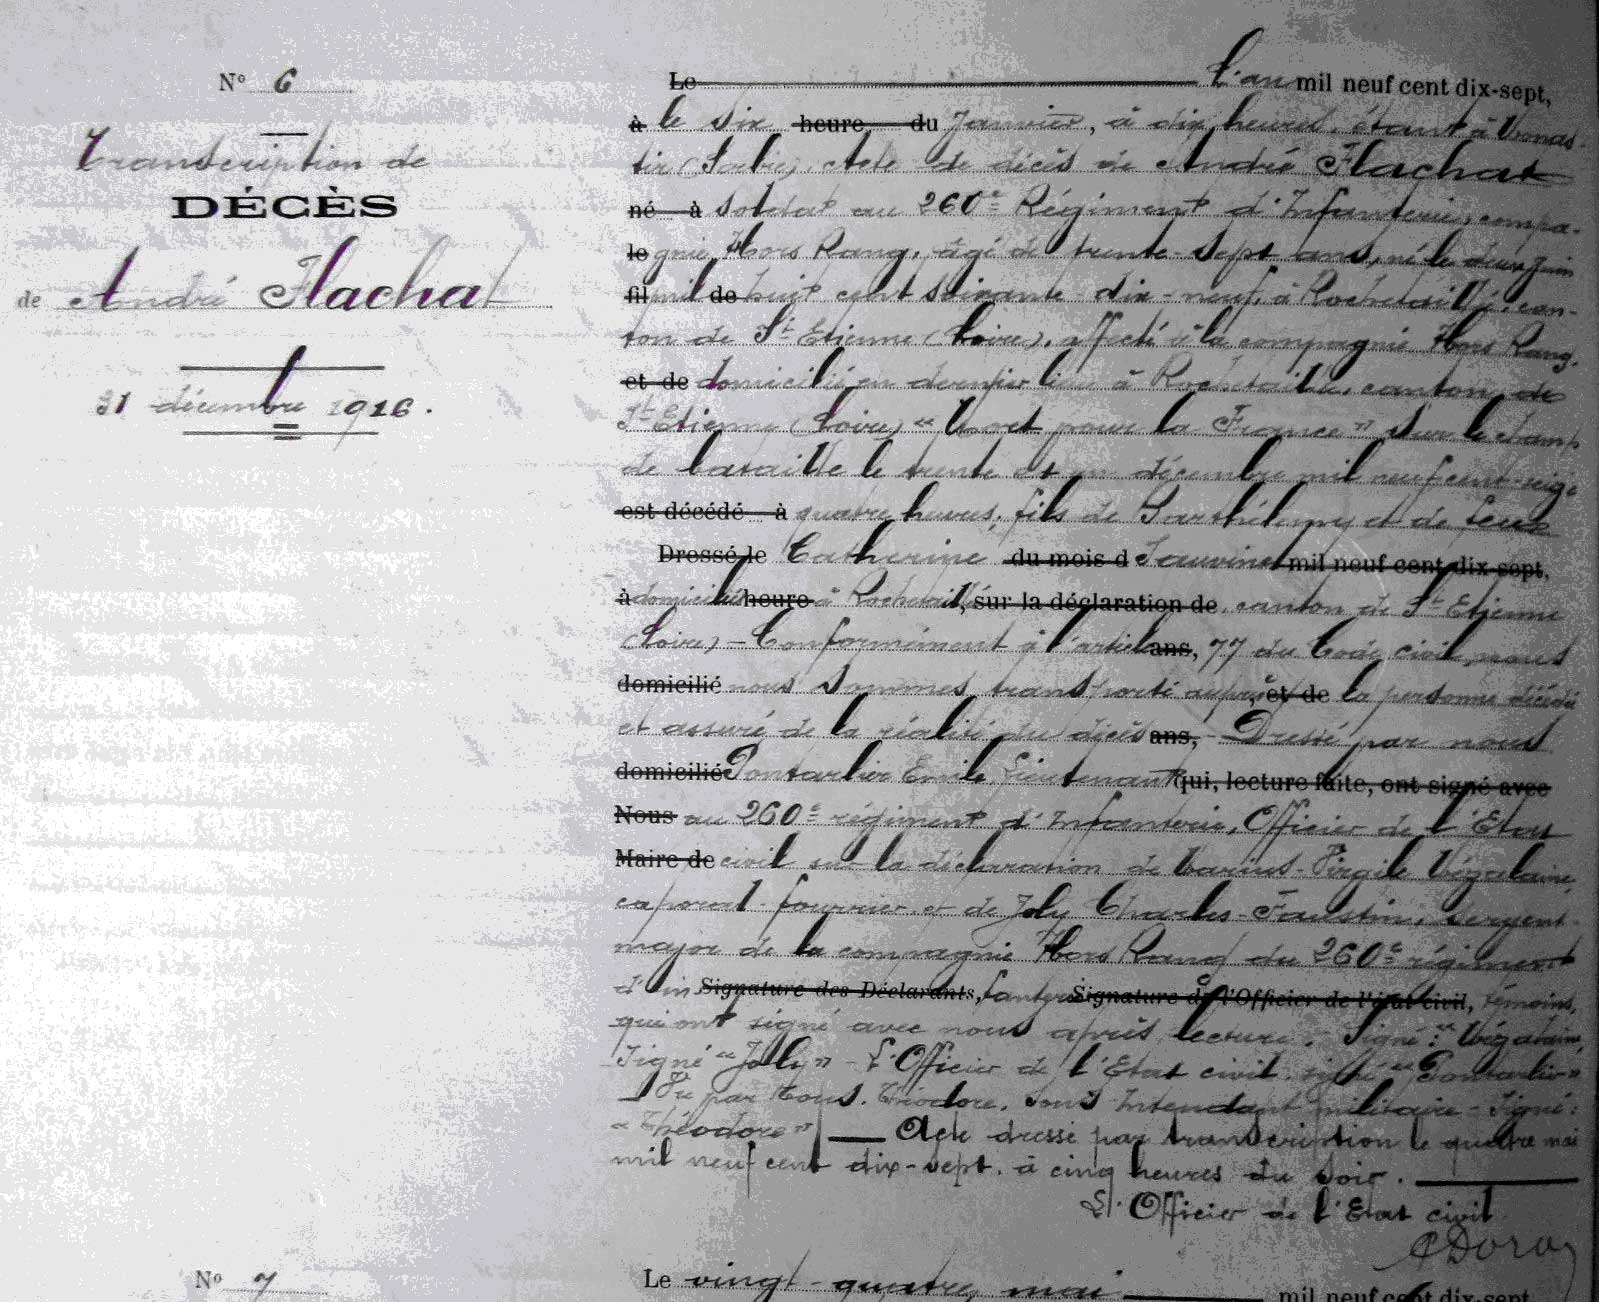 N° 6
Transcription de
DÉCÈS
de André Flachat
31 décembre 1916.
Le l'an mil neuf cent dix-sept,
à le six heure du Janvier, à dix heures, étant à Monas-
tir (Serbie). Acte de décès de André Flachat
né à soldat au 260e Régiment d'Infanterie, compa-
le gnie Hors Rang, âgé de trente sept ans, né le deux Juin
fil mil de huit cent soixante dix-neuf, à Rochetaillée, can-
ton de St Etienne (Loire), affecté à la compagnie Hors Rang,
et de domicilié en dernier lieu à Rochetaillée, canton de
St Etienne (Loire) « Mort pour la France » sur le champ
de bataille le trente et un décembre mil neuf cent-seize
est décédé à quatre heures, fils de Barthélemy et de feue
Dressé le Catherine du mois d Jauvinet mil neuf cent dix-sept,
à domiciliés heure à Rochetaillée, sur la déclaration de canton de St Etienne
(Loire) - Conformément à l'article ans, 77 du Code civil, nous
domicilié nous sommes transporté auprès, et de la personne décédée
et assuré de la réalité du décès ans, - Dressé par nous
domicilié Pontarlier Emile, Lieutenant qui, lecture faite, ont signé avec
Nous au 260e régiment d'Infanterie, Officier de l'Etat
Maire de civil sur la déclaration de Marius-Virgile Mégalaine,
caporal-fourrier, et de Joly Charles-Faustin, sergent-
major de la compagnie Hors Rang du 260e régiment
d'in Signature des Déclarants, fanterie Signature de l'Officier de l'état civil, témoins,
qui ont signé avec nous après lecture. Signé : « Mégalaine,
Signé « Joly » - L'Officier de l'Etat civil, signé « Pontarlier »
Vu par Nous, Théodore, sous Intendant militaire - Signé :
« Théodore » Acte dressé par transcription le quatre mai
mil neuf cent dix-sept, à cinq heures du soir.
L'Officier de l'Etat civil
N° 7
Le vingt-quatre mai mil neuf cent dix-sept